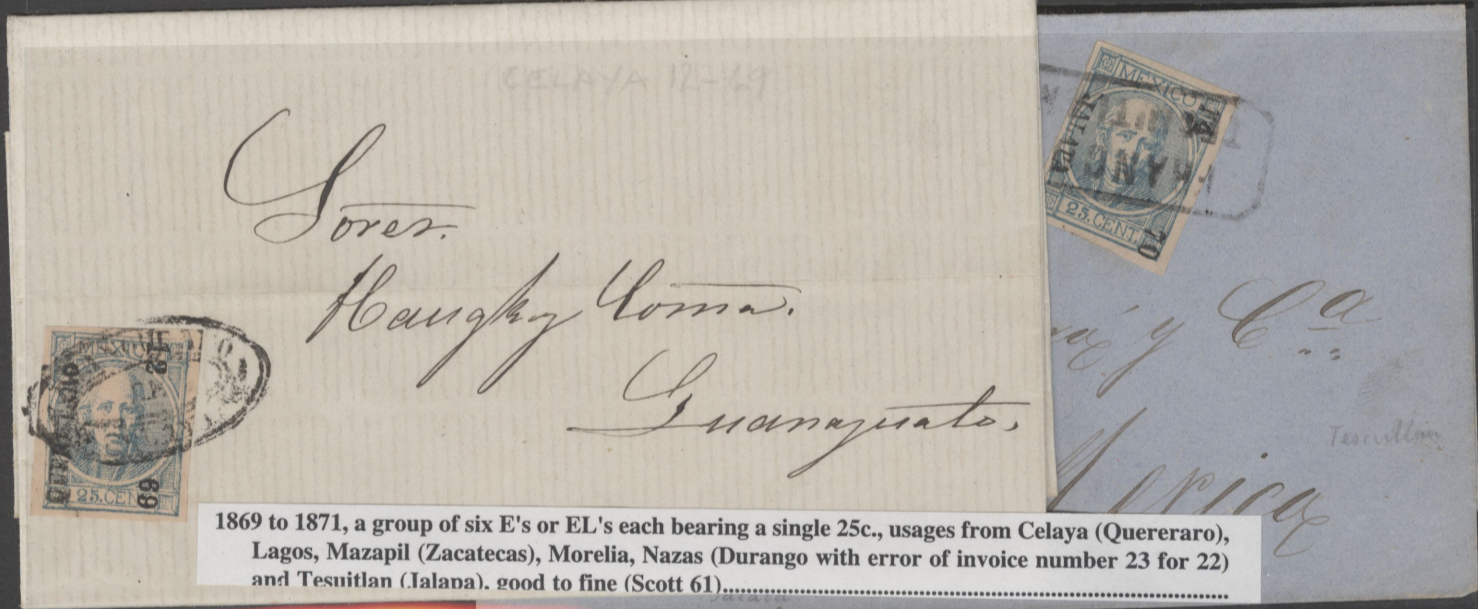 CELAYA 12-69
Sores.
Haugky Coma.
Guanajuato.
MEXICO
Queretaro
12
69
25. CENT.
MEXICO
JALAPA
14
FRANCO
25. CENT.
70
y Ca
Mexico
Tesuitlan
1869 to 1871, a group of six E's or EL's each bearing a single 25c., usages from Celaya (Quereraro),
Lagos, Mazapil (Zacatecas), Morelia, Nazas (Durango with error of invoice number 23 for 22)
and Tesuitlan (Jalapa), good to fine (Scott 61)
Jalapa